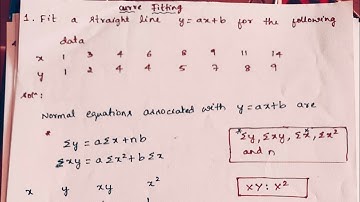 curve Fitting
1. Fit a straight line y = ax+b for the following
data
x 1 3 4 6 8 9 11 14
y 1 2 4 4 5 7 8 9
Sol<sup>n</sup>:
Normal equations associated with y = ax+b are
* Σy = aΣx + nb
Σxy = aΣx² + bΣx
*Σy, Σxy, Σx, Σx²
and n
x y xy x²
XY : X²